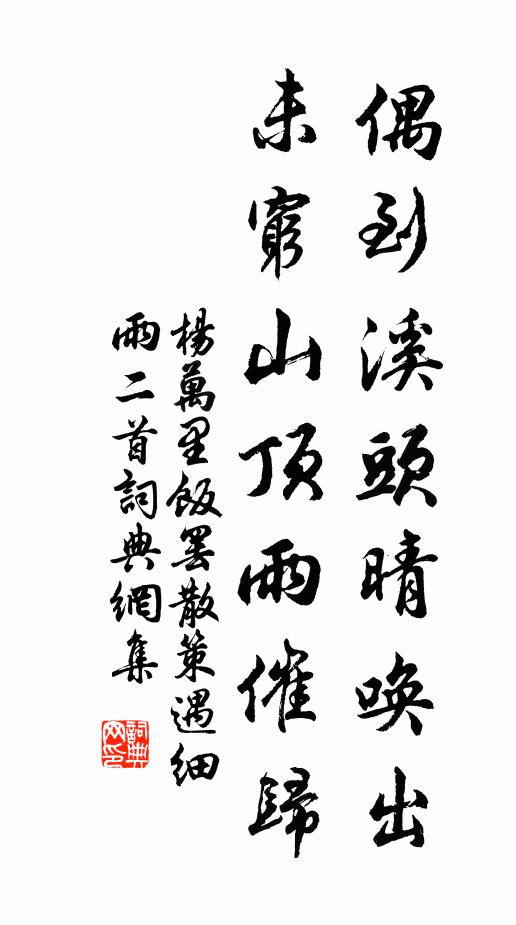 偶到溪頭晴喚出
未窮山頂雨催歸
楊萬里飯罢散策遇細
雨二首詞典網集
詞典
网印